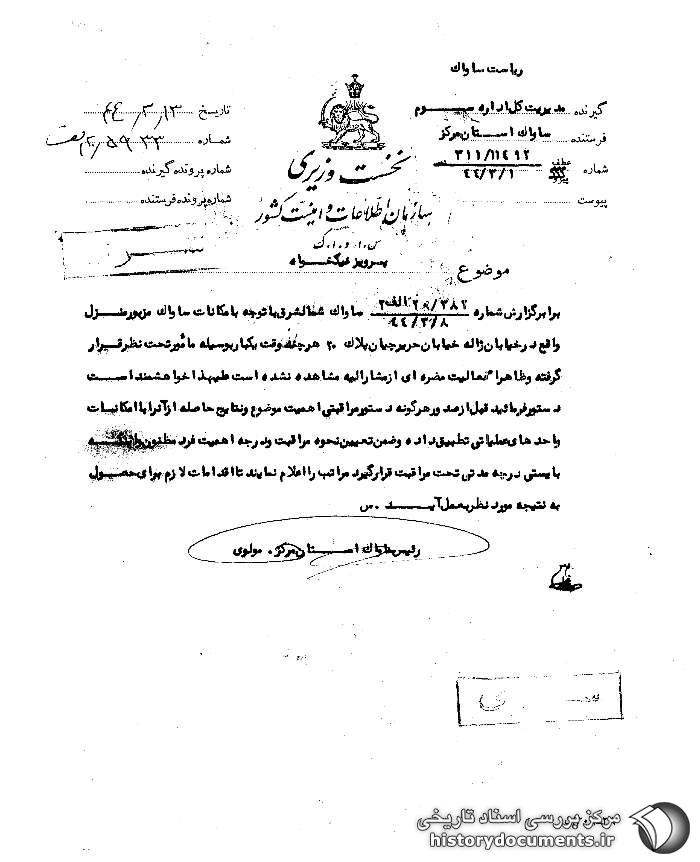 ریاست ساواک
گیرنده مدیریت کل اداره سوم
فرستنده ساواک استان مرکز
شماره عطف ۳۱۱/۱۱۴۹۲
۴۴/۳/۱
پیوست
نخست وزیری
سازمان اطلاعات و امنیت کشور
س.ا.و.ا.ک
تاریخ ۴۴/۳/۱۳
شماره ۲۰/۵۹۳۳
شماره پرونده گیرنده
شماره پرونده فرستنده
سر
موضوع پرویز نیکخواه
برابر گزارش شماره ۳۸۲/۲۰ الف ۲ ساواک شمالشرق با توجه بامکانات ساواک مزبور منزل
۴۴/۳/۸
واقع در خیابان ژاله خیابان حریرچیان پلاک ۲۰ هرچند وقت یکبار بوسیله مأمور تحت نظر قرار
گرفته و ظاهرا فعالیت مضره ای از مشارالیه مشاهده نشده است علیهذا خواهشمند است
دستور فرمائید قبل از صدور هرگونه دستور مراقبتی اهمیت موضوع و نتایج حاصله از آنرا با امکانیات
واحدهای عملیاتی تطبیق داده و ضمن تعیین نحوه مراقبت و درجه اهمیت فرد مظنون و اینکه
بایستی در چه مدتی تحت مراقبت قرار گیرد مراتب را اعلام نمایند تا اقدامات لازم برای حصول
به نتیجه مورد نظر بعمل آید. س
رئیس ساواک استان مرکز. مولوی
مرکز بررسی اسناد تاریخی
historydocuments.ir